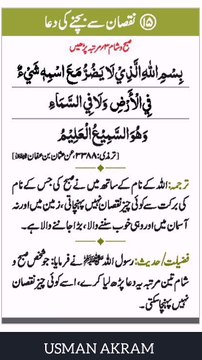 ۱۵ نقصان سے بچنے کی دعا
صبح و شام ۳ مرتبہ پڑھیں
بِسْمِ اللّٰهِ الَّذِيْ لَا يَضُرُّ مَعَ اسْمِهٖ شَيْءٌ
فِي الْاَرْضِ وَلَا فِي السَّمَاءِ
وَهُوَ السَّمِيْعُ الْعَلِيْمُ
(ترمذی: ۳۳۸۸، عن عثمان بن عفان)
ترجمہ: اللہ کے نام کے ساتھ میں نے صبح کی جس کے نام
کی برکت سے کوئی چیز نقصان نہیں پہنچاتی، زمین میں اور نہ
آسمان میں اور وہی خوب سننے والا، بڑا جاننے والا ہے۔
فضیلت/حدیث: رسول اللہ ﷺ نے فرمایا: جو شخص صبح و
شام تین مرتبہ یہ دعا پڑھ لیا کرے، اسے کوئی چیز نقصان
نہیں پہنچا سکتی۔
USMAN AKRAM